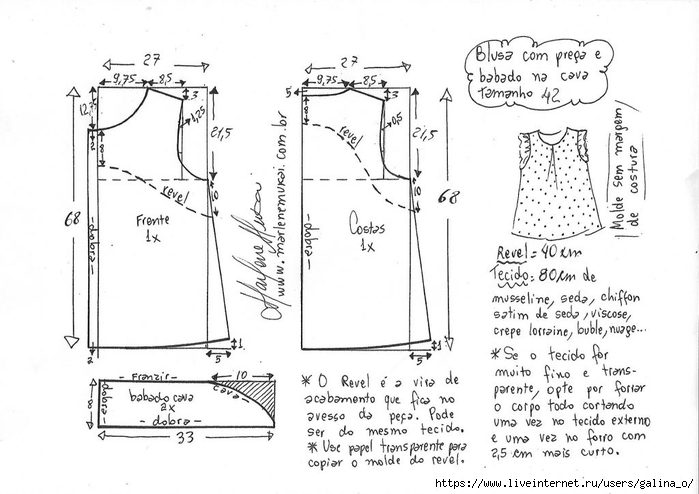 Blusa com prega e
babado na cava
Tamanho 42
27
9,75
8,5
3
12,75
2
8
1,25
21,5
revel
10
68
Frente
1x
dobra
2
5
1
Marlene Mukai
www.marlenemukai.com.br
27
9,75
8,5
5
3
8
0,5
21,5
revel
10
68
Costas
1x
dobra
5
1
Molde sem margem
de costura
Revel = 40 cm
Tecido = 80 cm de
musseline, seda, chiffon
satim de seda, viscose,
crepe lorraine, buble, nuage...
* Se o tecido for
muito fino e trans-
parente, opte por forrar
o corpo todo cortando
uma vez no tecido externo
e uma vez no forro com
2,5 cm mais curto.
- Franzir -
10
8
dobra
babado cava
2x
cava
- dobra -
33
* O Revel é a vira de
acabamento que fica no
avesso da peça. Pode
ser do mesmo tecido.
* Use papel transparente para
copiar o molde do revel.
https://www.liveinternet.ru/users/galina_o/